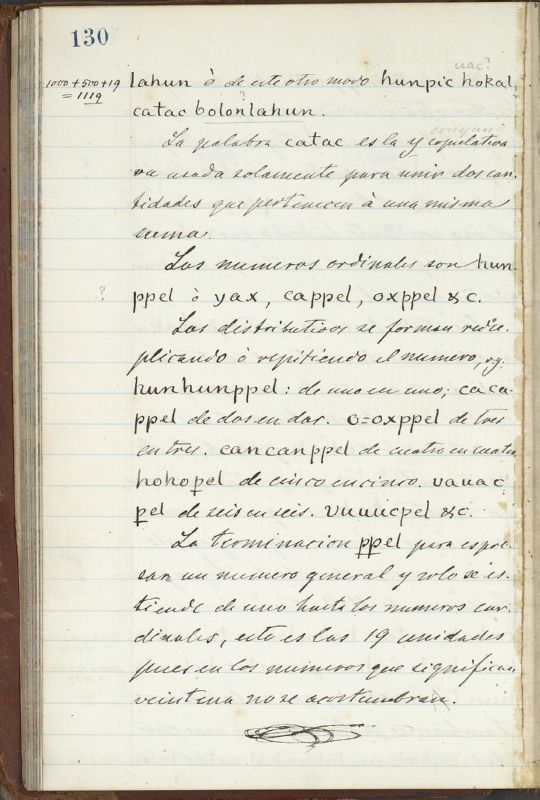 130
uac?
1000 + 500 + 19
= 1119
lahun ò de este otro modo hunpic hokal
catac bolonlahun.
?
La palabra catac es la y copulativa
va usada solamente para unir dos can-
tidades que pertenecen à una misma
suma.
Los numeros ordinales son hun-
?
ppel ò yax, cappel, oxppel &c.
Los distributivos se forman redu-
plicando ò repitiendo el numero, v.g.
hunhunppel: de uno en uno; caca-
ppel de dos en dos. o=oxppel de tres
en tres. cancanppel de cuatro en cuatro
hohopel de cinco en cinco. uauac
pel de seis en seis. vuuucpel &c.
La terminacion ppel para espre-
sar un numero general y solo se es-
tiende de uno hasta los numeros car-
dinales, esto es las 19 unidades
pues en los numeros que significan
veintena no se acostumbran.